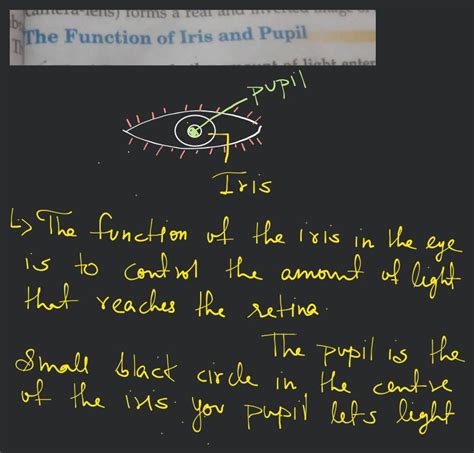 (camera-lens) forms a real and inverted image of
The Function of Iris and Pupil
amount of light enter
pupil
Iris
↳ The function of the iris in the eye
is to control the amount of light
that reaches the retina.
The pupil is the
Small black circle in the centre
of the iris. you pupil lets light